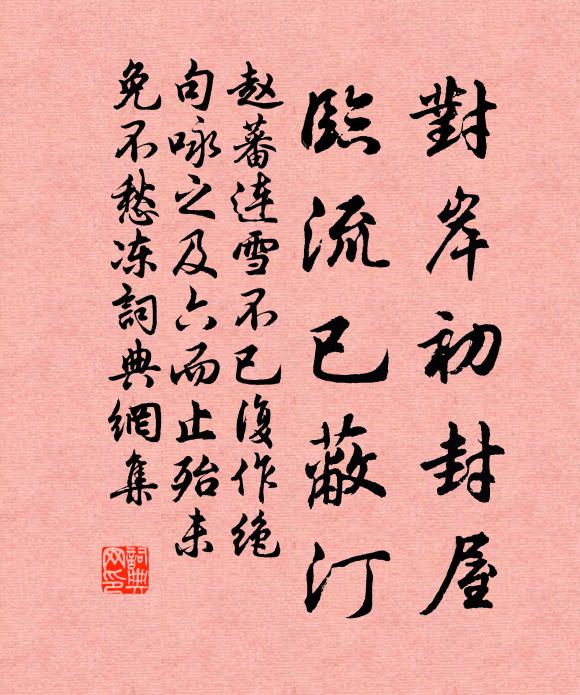 對岸初封屋
臨流已蔽汀
赵蕃连雪不已復作绝
句咏之及六而止殆未
免不愁冻詞典網集
詞典网印